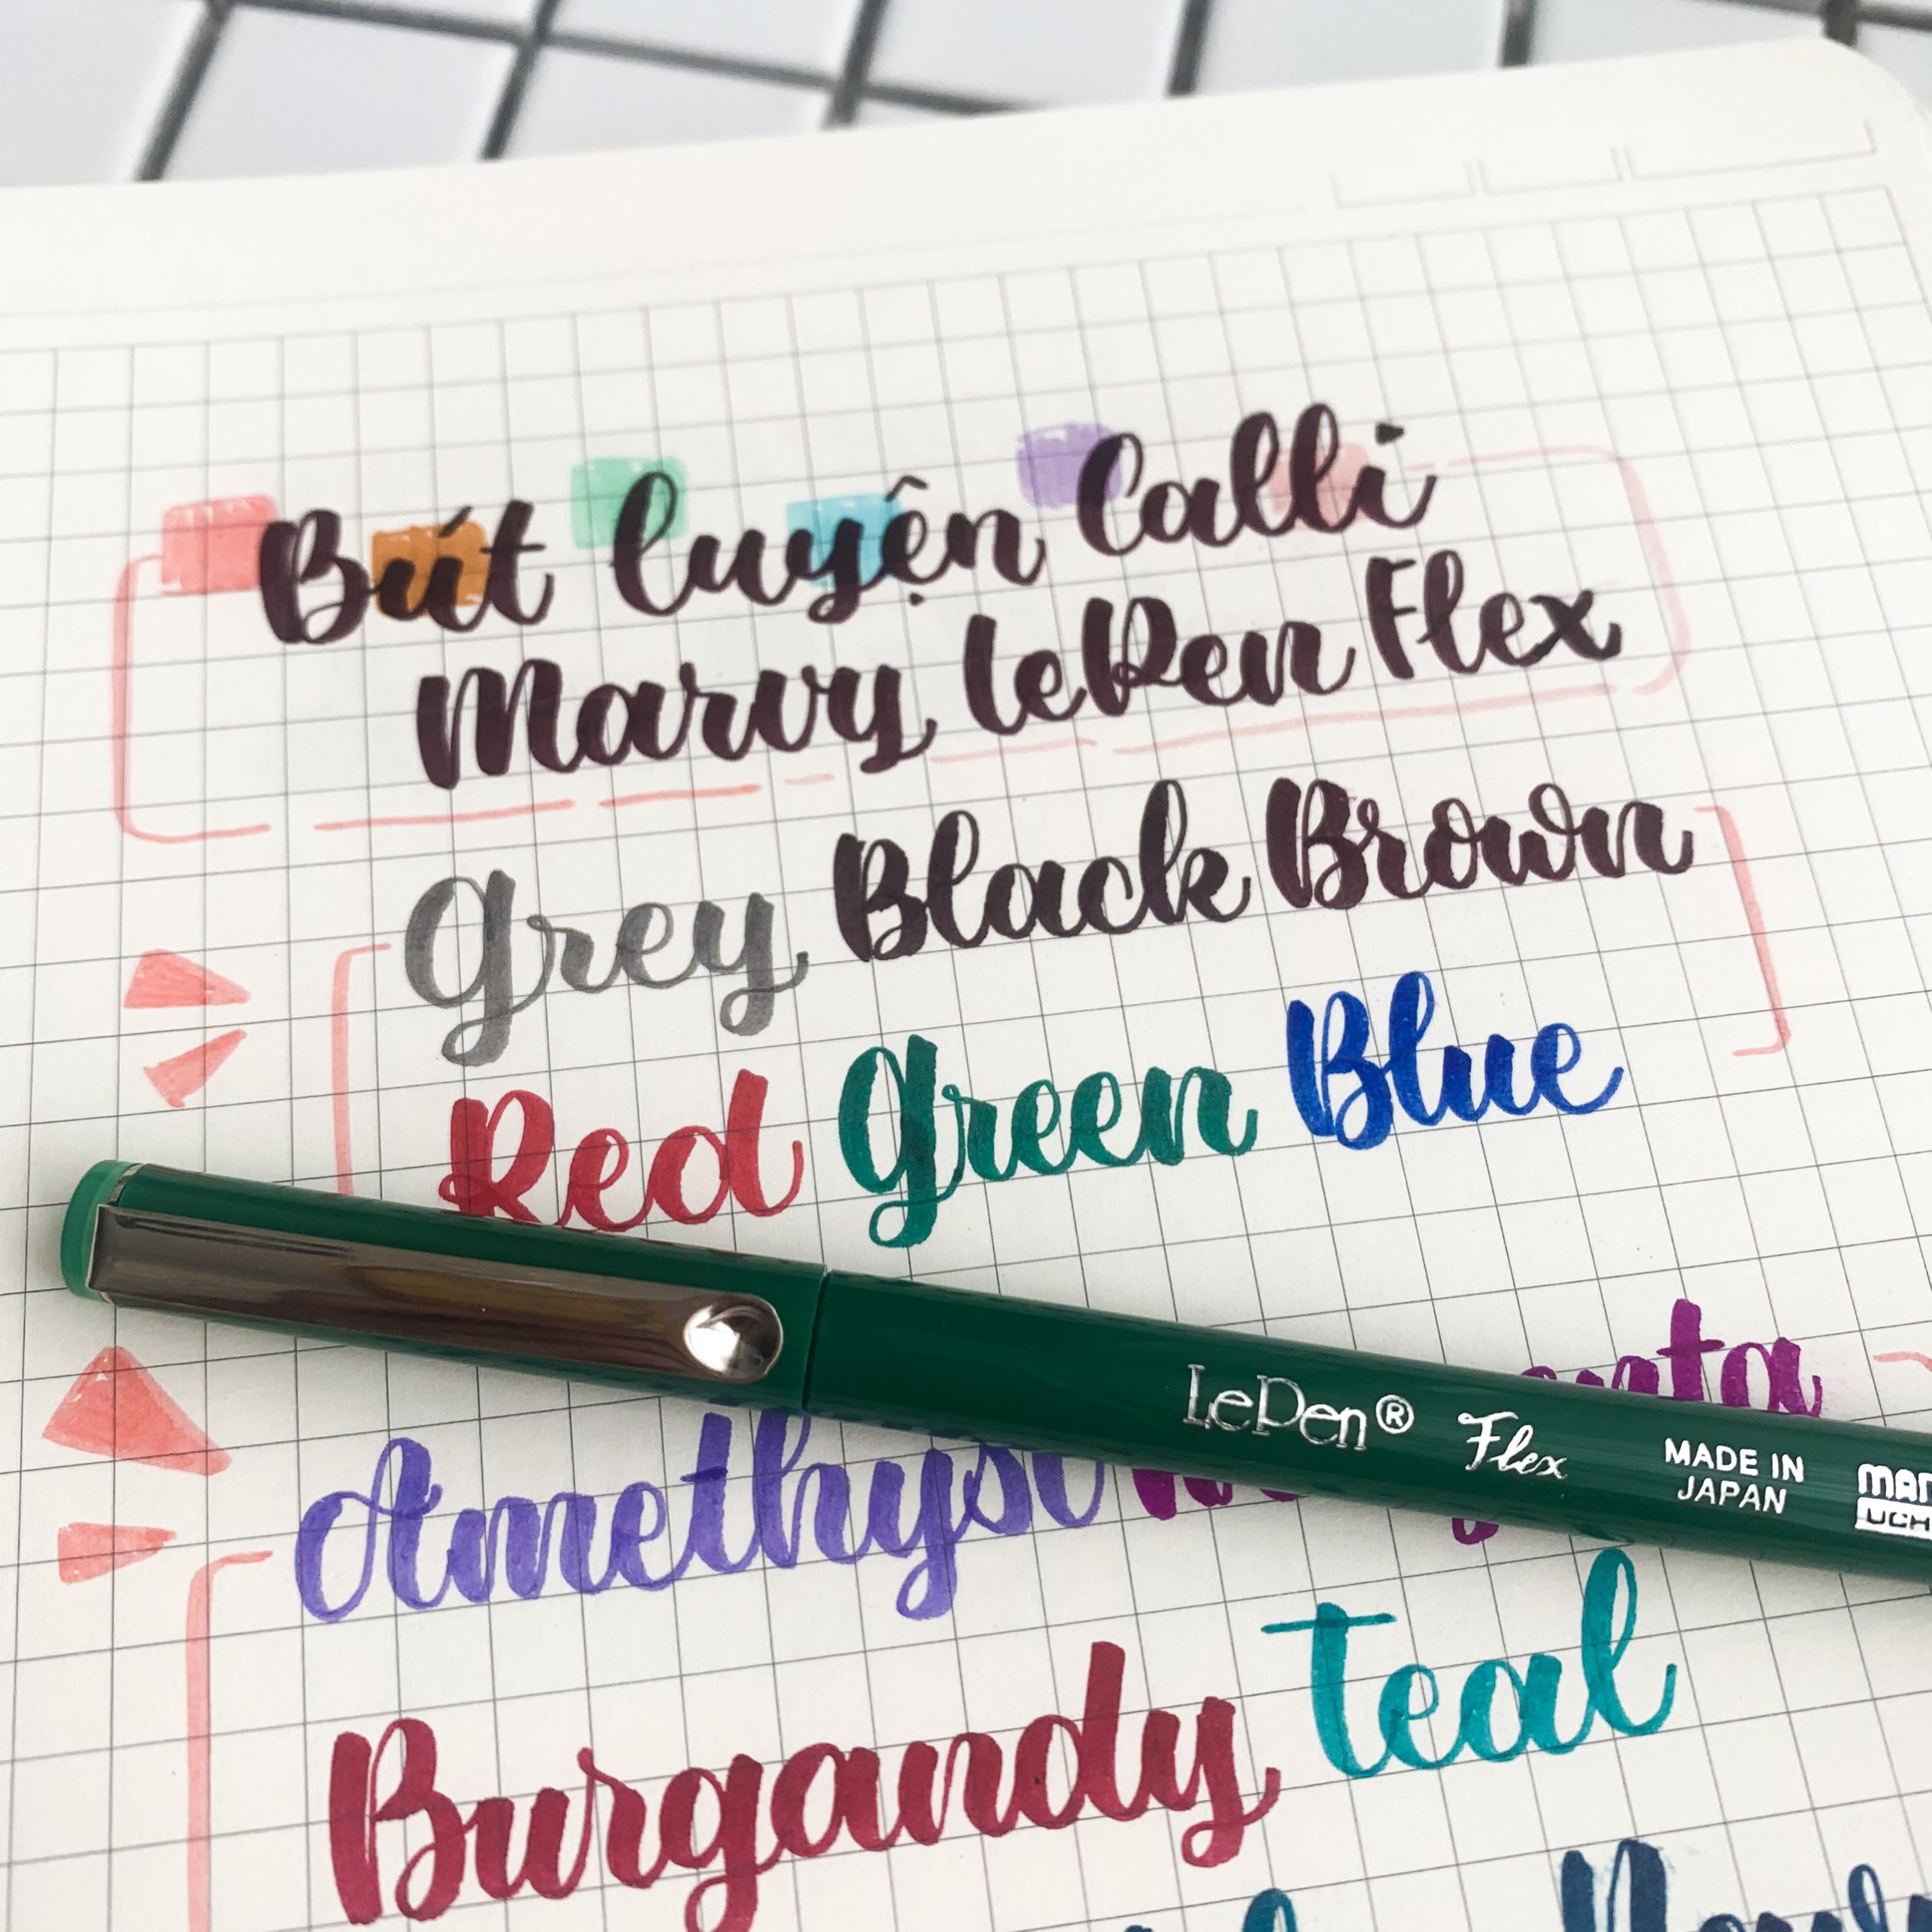 Bút luyện Calli
Marvy LePen Flex
Grey Black Brown
Red Green Blue
LePen® Flex MADE IN
JAPAN
Amethyst
Burgandy Teal